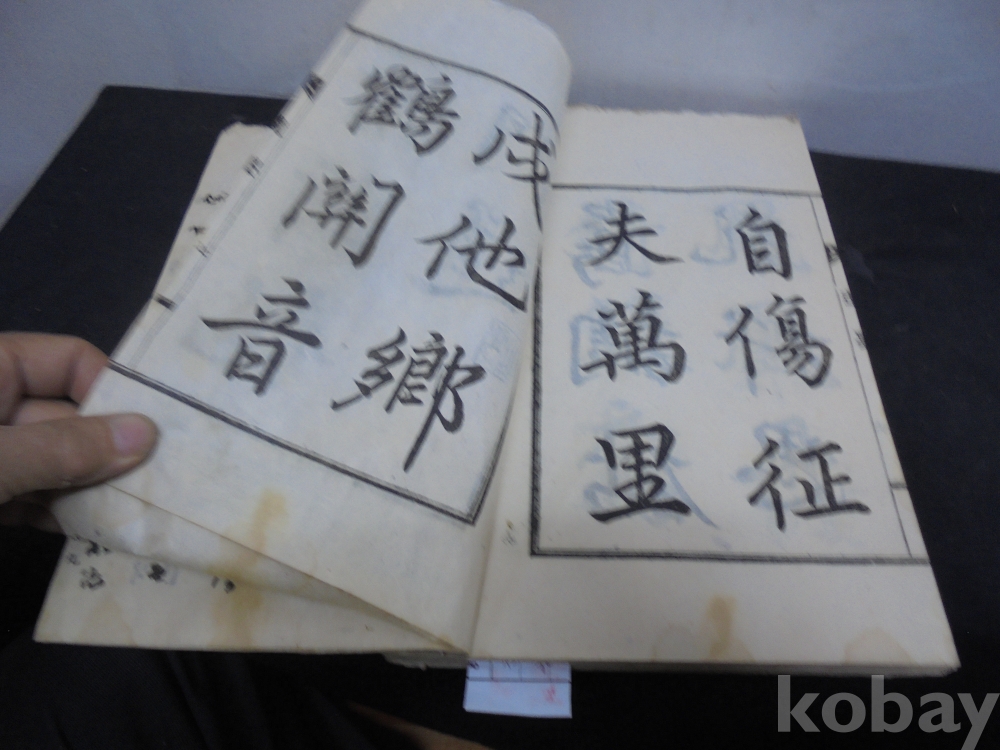 自傷征
夫萬里
戍他鄉
鶴關音
kobay